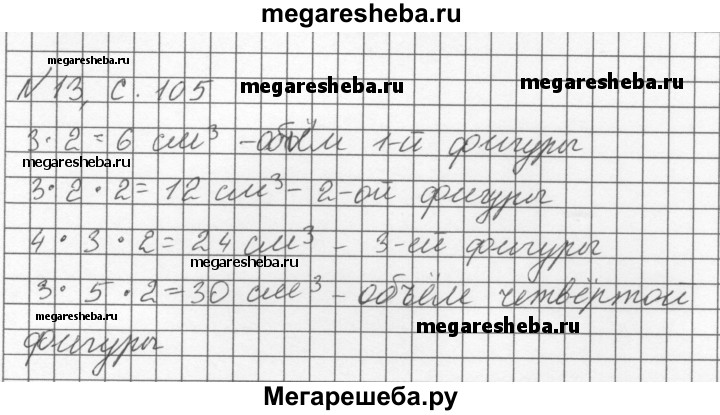 megaresheba.ru
megaresheba.ru
№ 13, с. 105 megaresheba.ru megaresheba.ru
3 · 2 = 6 см³ - объём 1-й фигуры
megaresheba.ru
3 · 2 · 2 = 12 см³ - 2-ой фигуры
4 · 3 · 2 = 24 см³ - 3-ей фигуры
megaresheba.ru
3 · 5 · 2 = 30 см³ - объём четвёртой
megaresheba.ru megaresheba.ru
фигуры
Мегарешеба.ру